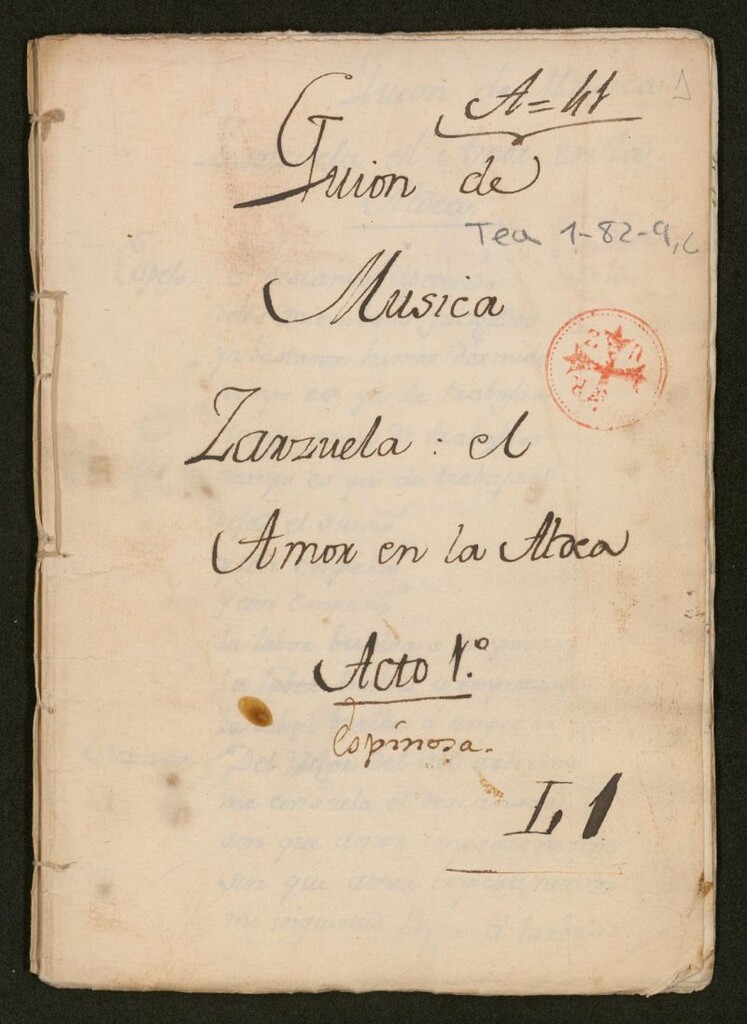 A=41
Guion de
Tea 1-82-9,
Musica
Zarzuela: el
Amor en la Aldea
Acto 1.º
Espinosa.
L 1